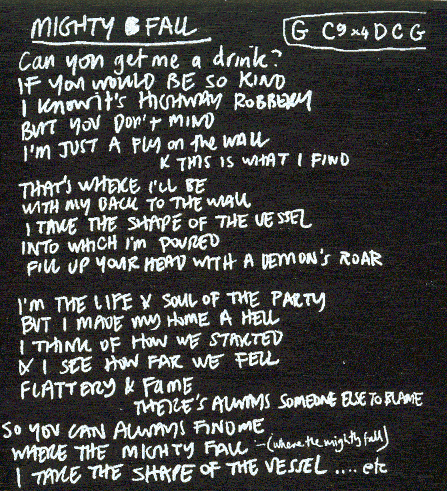 MIGHTY FALL
G C9 x4 D C G
Can you get me a drink?
IF YOU WOULD BE SO KIND
I KNOW IT'S HIGHWAY ROBBERY
BUT YOU DON'T MIND
I'M JUST A FLY ON THE WALL
& THIS IS WHAT I FIND
THAT'S WHERE I'LL BE
WITH MY BACK TO THE WALL
I TAKE THE SHAPE OF THE VESSEL
INTO WHICH I'M POURED
FILL UP YOUR HEAD WITH A DEMON'S ROAR
I'M THE LIFE & SOUL OF THE PARTY
BUT I MADE MY HOME A HELL
I THINK OF HOW WE STARTED
& I SEE HOW FAR WE FELL
FLATTERY & FAME
THERE'S ALWAYS SOMEONE ELSE TO BLAME
SO YOU CAN ALWAYS FIND ME
WHERE THE MIGHTY FALL - (where the mighty fall)
I TAKE THE SHAPE OF THE VESSEL .... etc